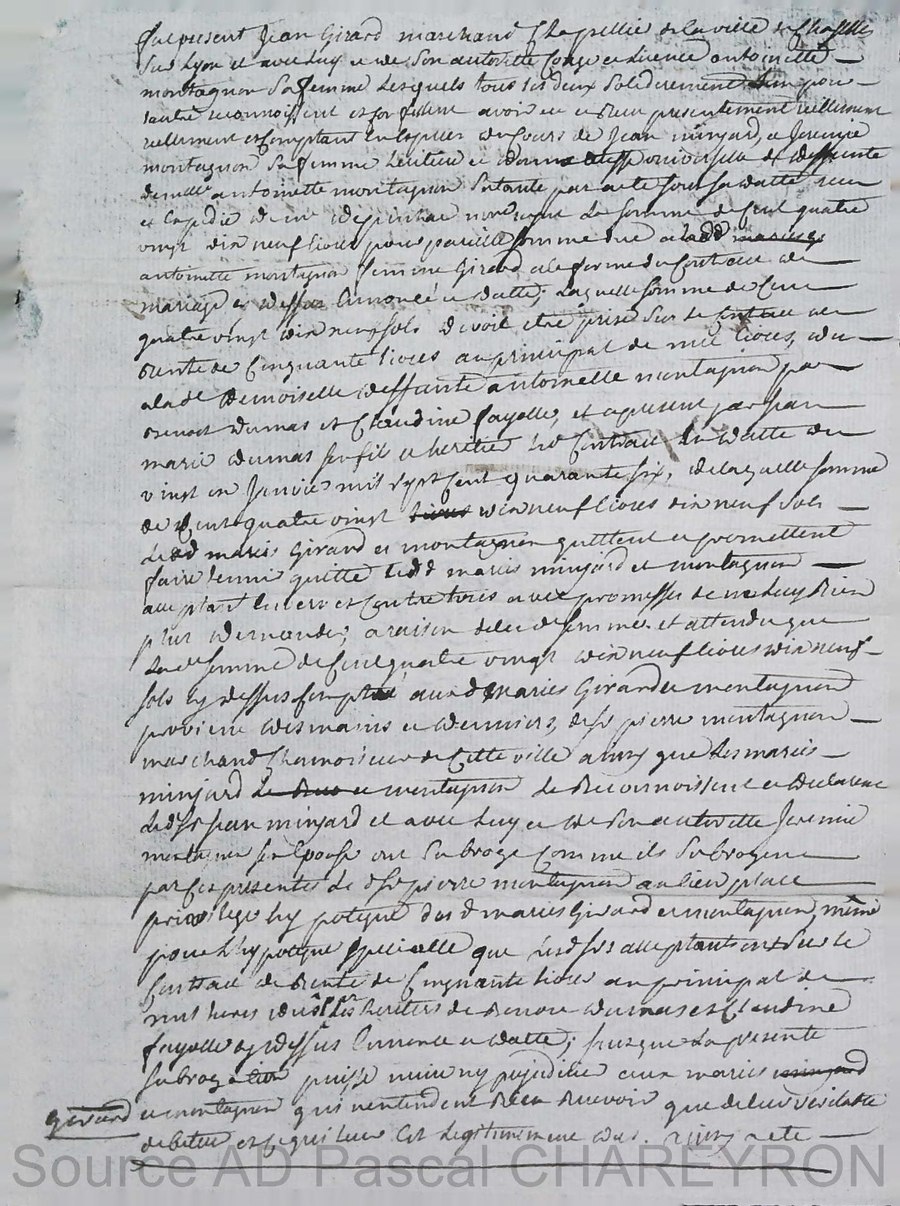 fut present Jean Girard marchand Chapellier de la ville de Chaselle
Sur Lyon et avec luy et de Son autorité Conge et Licence antoinette
montagnon Sa femme Lesquels tous les deux Solidairement Lun pour
lautre reconnoissent et confessent avoir eu et Receu presentement reellement
reellement et Comptant en Espèces du Cours de Jean minjard, et Jeremie
montagnon Sa femme heritiere et universelle de deffunte
demlle antoinette montagnon Sa tante par acte Sous Sa datte receu
et Expedié de me despinhac nore royal La Somme de Cent quatre
vingt dix neuf livres pour pareille Somme due a
antoinette montagnon femme Girard a la forme du Contract de
mariage cy dessus Enoncé et datté; Laquelle Somme de Cent
quatre vingt dix neuf sols devoit etre prise Sur le Contract de
Rente de Cinquante livres au principal de mil livres, du
a lade Demoiselle deffunte antoinette montagnon par
Benoit dumas et Claudine fayolle, et a present par Jean
marie dumas son fils et heritier Led Contract En datte du
vingt un Janvier mil Sept Cent quarante Six, de laquelle Somme
de Cent quatre vingt dix neuf livres dix neuf Sols
Lesdd mariés Girard et montagnon quittent et promettent
faire tenir quitte Lesdd mariés minjard et montagnon
acceptant Envers et Contre tous avec promesse de ne Luy Rien
plus demander, a raison de lade Somme. et attendu que
Lade Somme de Cent quatre vingt dix neuf livres dix neuf
Sols cy dessus Compté auxd mariés Girard et montagnon
provient des mains et deniers, de Sr pierre montagnon
marchand Chamoiseur de Cette ville ainsy que Les mariés
minjard et montagnon Le Reconnoissent et declarent
Led Sr Jean minjard et avec Luy et de Son autorité Jeremie
montagnon Son Epouse ont Subrogé Comme ils Subrogent
par Ces presentes le d Sr pierre montagnon au lieu place
privilege hypoteque desd mariés Girard et montagnon, même
pour Lhypoteque Specialle que Lesd acceptant ont Sur le
Contract de Rente de Cinquante livres au principal de
mil livres du par les heritiers de Benoit dumas et Claudine
fayolle cy dessus Enoncé et datté; Sans que La presente
Subrogation puisse nuire ny prejudicier aux mariés minjard
Girard
et montagnon qui nentendent Rien Recevoir que de leur veritable
debiteur et Ce qui leur Est Legitimement du. ainsy a eté
Source AD Pascal CHAREYRON